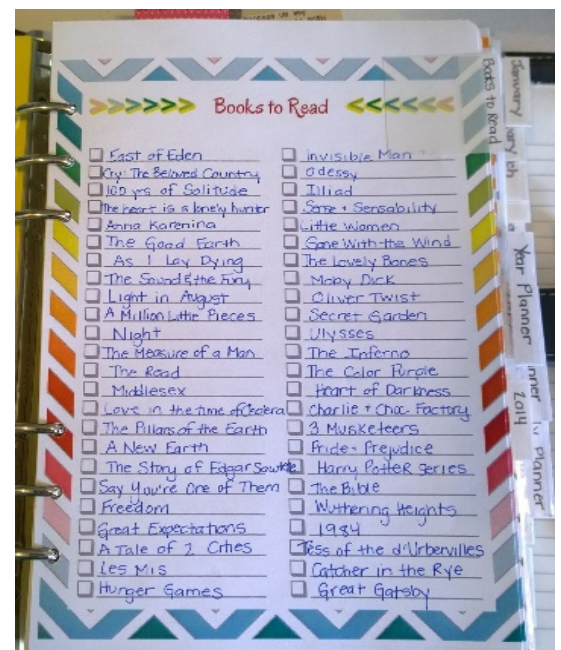 Books to Read
East of Eden
Cry: The Beloved Country
100 yrs of Solitude
The heart is a lonely hunter
Anna Karenina
The Good Earth
As I Lay Dying
The Sound & the Fury
Light in August
A Million Little Pieces
Night
The Measure of a Man
The Road
Middlesex
Love in the time of Cholera
The Pillars of the Earth
A New Earth
The Story of Edgar Sawtelle
Say You're One of Them
Freedom
Great Expectations
A Tale of 2 Cities
Les Mis
Hunger Games
Invisible Man
Odessy
Illiad
Sense + Sensability
Little Women
Gone With the Wind
The Lovely Bones
Moby Dick
Oliver Twist
Secret Garden
Ulysses
The Inferno
The Color Purple
Heart of Darkness
Charlie + Choc Factory
3 Musketeers
Pride + Prejudice
Harry Potter Series
The Bible
Wuthering Heights
1984
Tess of the d'Urbervilles
Catcher in the Rye
Great Gatsby
Books to Read
January
Year Planner
2014
Planner